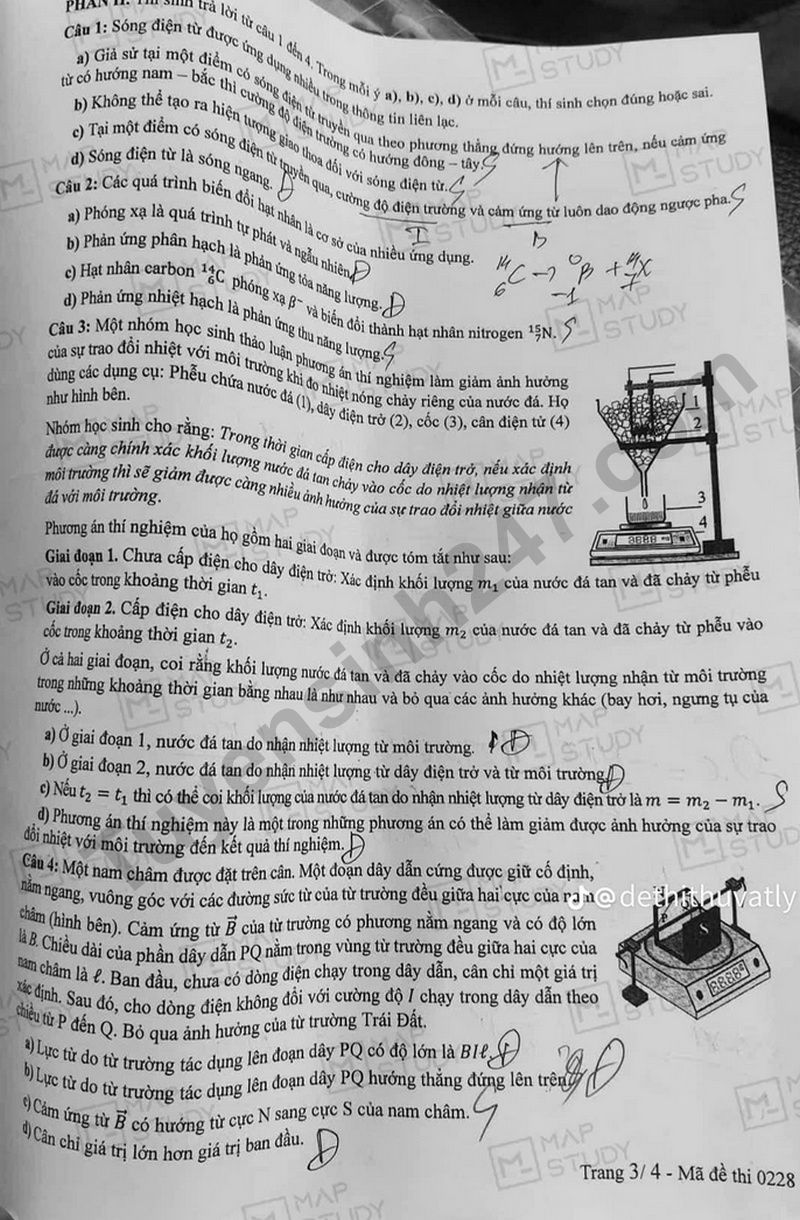 PHẦN II. Thí sinh trả lời từ câu 1 đến 4. Trong mỗi ý a), b), c), d) ở mỗi câu, thí sinh chọn đúng hoặc sai.
Câu 1: Sóng điện từ được ứng dụng nhiều trong thông tin liên lạc.
a) Giả sử tại một điểm có sóng điện từ truyền qua theo phương thẳng đứng hướng lên trên, nếu cảm ứng
từ có hướng nam – bắc thì cường độ điện trường có hướng đông – tây. S
b) Không thể tạo ra hiện tượng giao thoa đối với sóng điện từ. S
c) Tại một điểm có sóng điện từ truyền qua, cường độ điện trường và cảm ứng từ luôn dao động ngược pha. S
d) Sóng điện từ là sóng ngang. Đ
Câu 2: Các quá trình biến đổi hạt nhân là cơ sở của nhiều ứng dụng.
a) Phóng xạ là quá trình tự phát và ngẫu nhiên. Đ
b) Phản ứng phân hạch là phản ứng tỏa năng lượng. Đ
¹⁴₆C → ⁰₋₁β + ¹⁴₇X
c) Hạt nhân carbon ¹⁴₆C phóng xạ β⁻ và biến đổi thành hạt nhân nitrogen ¹⁵₇N. S
d) Phản ứng nhiệt hạch là phản ứng thu năng lượng. S
Câu 3: Một nhóm học sinh thảo luận phương án thí nghiệm làm giảm ảnh hưởng
của sự trao đổi nhiệt với môi trường khi đo nhiệt nóng chảy riêng của nước đá. Họ
dùng các dụng cụ: Phễu chứa nước đá (1), dây điện trở (2), cốc (3), cân điện tử (4)
như hình bên.
1
2
3
4
Nhóm học sinh cho rằng: Trong thời gian cấp điện cho dây điện trở, nếu xác định
được càng chính xác khối lượng nước đá tan chảy vào cốc do nhiệt lượng nhận từ
môi trường thì sẽ giảm được càng nhiều ảnh hưởng của sự trao đổi nhiệt giữa nước
đá với môi trường.
Phương án thí nghiệm của họ gồm hai giai đoạn và được tóm tắt như sau:
Giai đoạn 1. Chưa cấp điện cho dây điện trở: Xác định khối lượng m₁ của nước đá tan và đã chảy từ phễu
vào cốc trong khoảng thời gian t₁.
Giai đoạn 2. Cấp điện cho dây điện trở: Xác định khối lượng m₂ của nước đá tan và đã chảy từ phễu vào
cốc trong khoảng thời gian t₂.
Ở cả hai giai đoạn, coi rằng khối lượng nước đá tan và đã chảy vào cốc do nhiệt lượng nhận từ môi trường
trong những khoảng thời gian bằng nhau là như nhau và bỏ qua các ảnh hưởng khác (bay hơi, ngưng tụ của
nước ...).
a) Ở giai đoạn 1, nước đá tan do nhận nhiệt lượng từ môi trường. Đ
b) Ở giai đoạn 2, nước đá tan do nhận nhiệt lượng từ dây điện trở và từ môi trường. Đ
c) Nếu t₂ = t₁ thì có thể coi khối lượng của nước đá tan do nhận nhiệt lượng từ dây điện trở là m = m₂ − m₁. S
d) Phương án thí nghiệm này là một trong những phương án có thể làm giảm được ảnh hưởng của sự trao
đổi nhiệt với môi trường đến kết quả thí nghiệm. Đ
Câu 4: Một nam châm được đặt trên cân. Một đoạn dây dẫn cứng được giữ cố định,
nằm ngang, vuông góc với các đường sức từ của từ trường đều giữa hai cực của nam
@dethithuvatly
châm (hình bên). Cảm ứng từ B⃗ của từ trường có phương nằm ngang và có độ lớn
là B. Chiều dài của phần dây dẫn PQ nằm trong vùng từ trường đều giữa hai cực của
nam châm là ℓ. Ban đầu, chưa có dòng điện chạy trong dây dẫn, cân chỉ một giá trị
xác định. Sau đó, cho dòng điện không đổi với cường độ I chạy trong dây dẫn theo
chiều từ P đến Q. Bỏ qua ảnh hưởng của từ trường Trái Đất.
P
S
a) Lực từ do từ trường tác dụng lên đoạn dây PQ có độ lớn là BIℓ. Đ
b) Lực từ do từ trường tác dụng lên đoạn dây PQ hướng thẳng đứng lên trên. Đ
c) Cảm ứng từ B⃗ có hướng từ cực N sang cực S của nam châm. S
d) Cân chỉ giá trị lớn hơn giá trị ban đầu. Đ
Trang 3/ 4 - Mã đề thi 0228
MAP STUDY
tuyensinh247.com